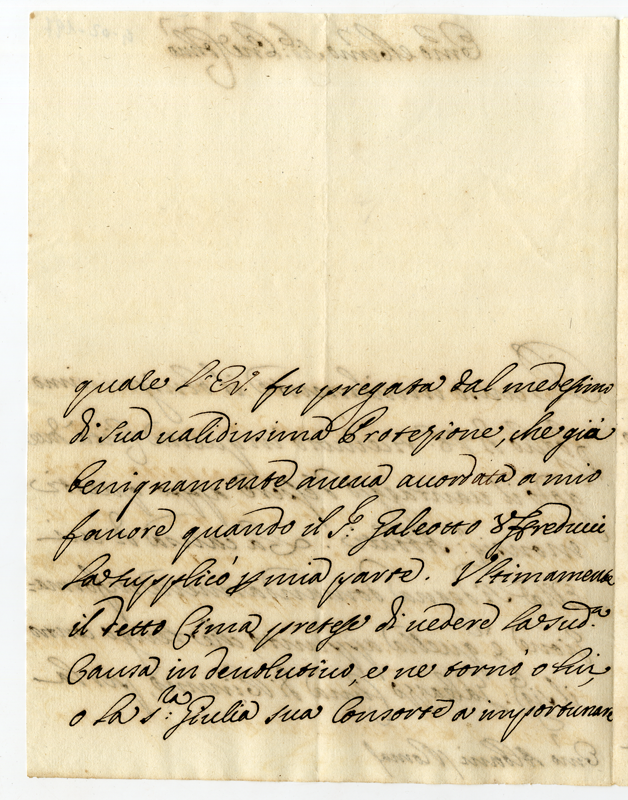 quale l'Ev. fu pregata dal medesimo
di sua validissima Protezione, che già
benignamente aveva accordata a mio
favore quando il Sr. Galeotto Uffreducci
la supplicò p mia parte. Ultimamente
il detto Cima pretese di vedere la sudᵃ.
Causa in devolutivo, e ne tornò o lui,
o la S.ra Giulia sua Consorte a importunare